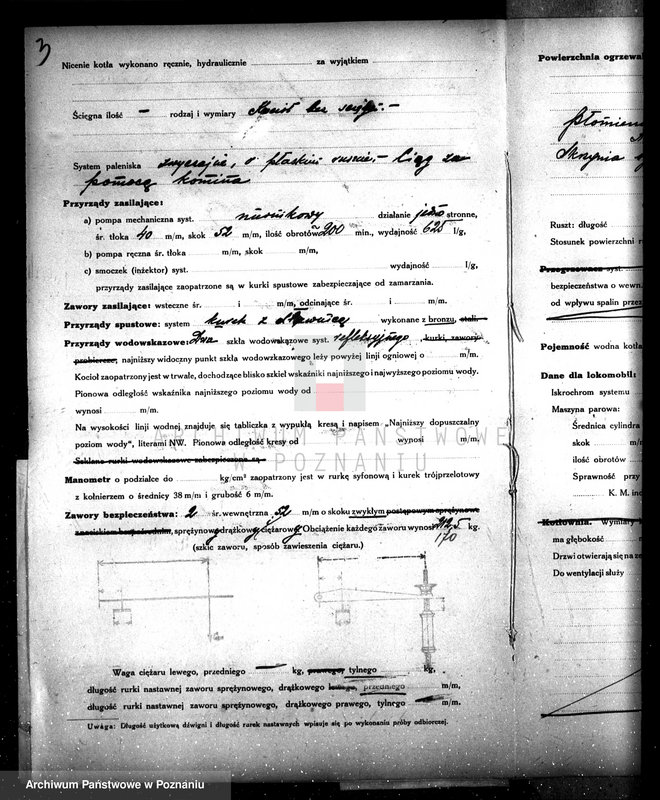 3
Nicenie kotła wykonano ręcznie, hydraulicznie za wyjątkiem
Ściegna ilość — rodzaj i wymiary Kocioł bez ścięgi.—
System paleniska zwyczajne, o płaskim ruszcie.— Ciąg za
pomocą komina
Przyrządy zasilające:
a) pompa mechaniczna syst. nurnikowy działanie jedno stronne,
śr. tłoka 40 m/m, skok 52 m/m, ilość obrotów ~200 min., wydajność 625 l/g,
b) pompa ręczna śr. tłoka m/m, skok m/m,
c) smoczek (inżektor) syst. wydajność l/g,
przyrządy zasilające zaopatrzone są w kurki spustowe zabezpieczające od zamarzania.
Zawory zasilające: wsteczne śr. i m/m, odcinające śr. i m/m.
Przyrządy spustowe: system kurek z dławnicą wykonane z bronzu, stali.
Przyrządy wodowskazowe: Dwa szkła wodowskazowe syst. refleksyjnego, kurki, zawory
probiercze; najniższy widoczny punkt szkła wodowskazowego leży powyżej linji ogniowej o m/m.
Kocioł zaopatrzony jest w trwałe, dochodzące blisko szkieł wskaźniki najniższego i najwyższego poziomu wody.
Pionowa odległość wskaźnika najniższego poziomu wody od
wynosi m/m.
Na wysokości linji wodnej znajduje się tabliczka z wypukłą kresą i napisem „Najniższy dopuszczalny
poziom wody", literami NW. Pionowa odległość kresy od wynosi m/m.
Szklane rurki wodowskazowe zabezpieczone są
Manometr o podziałce do kg/cm² zaopatrzony jest w rurkę syfonową i kurek trójprzelotowy
z kołnierzem o średnicy 38 m/m i grubość 6 m/m.
Zawory bezpieczeństwa: 2 śr. wewnętrzna 52 m/m o skoku zwykłym postępowym sprężynowe
naciskiem bezpośrednim, sprężynowy drążkowy ciężarowy Obciążenie każdego zaworu wynosi 212,5 kg.
170
(szkic zaworu, sposób zawieszenia ciężaru.)
Waga ciężaru lewego, przedniego — kg, prawego tylnego kg,
długość rurki nastawnej zaworu sprężynowego, drążkowego lewego, przedniego m/m,
długość rurki nastawnej zaworu sprężynowego, drążkowego prawego, tylnego — m/m.
Uwaga: Długość użytkową dźwigni i długość rurek nastawnych wpisuje się po wykonaniu próby odbiorczej.
Powierzchnia ogrzewa
płomien
Skrzynia
Ruszt: długość
Stosunek powierzchni r
Przegrzewacz syst.
bezpieczeństwa o wewn.
od wpływu spalin przez
Pojemność wodna kotła
Dane dla lokomobil:
Iskrochrom systemu
Maszyna parowa:
Średnica cylindra
skok m/
ilość obrotów
Sprawność przy
K. M. ind
Kotłownia. Wymiary
ma głębokość m
Drzwi otwierają się na ze
Do wentylacji służy
ARCHIWUM PAŃSTWOWE
W POZNANIU
Archiwum Państwowe w Poznaniu